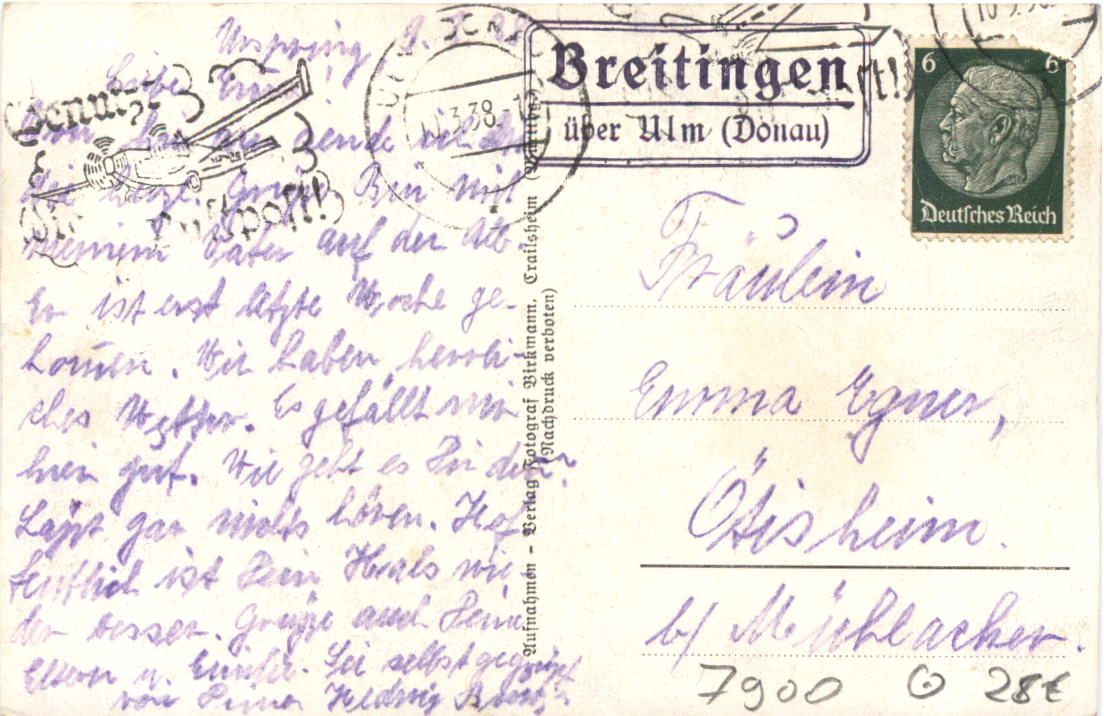 Urspring, 9. 3. 38
Liebe Emma!
sende ich
die Grüße. Bin mit
meinem Vater auf der Alb
Er ist erst letzte Woche ge-
kommen. Wir haben herrli-
ches Wetter. Es gefällt mir
hier gut. Wie geht es Dir denn?
Läßt gar nichts hören. Hof-
fentlich ist Dein Hals wie-
der besser. Grüße auch Deine
Eltern u. Sei selbst gegrüßt
von Deiner Hedwig
Benützt
Luftpost!
10.3.38
Breitingen
über Ulm (Donau)
6 6
Deutsches Reich
Aufnahmen - Verlag Fotograf Birkmann, Crailsheim (Württbg)
(Nachdruck verboten)
Fräulein
Emma Egner,
Ötisheim.
b/ Mühlacker.
7900 28€